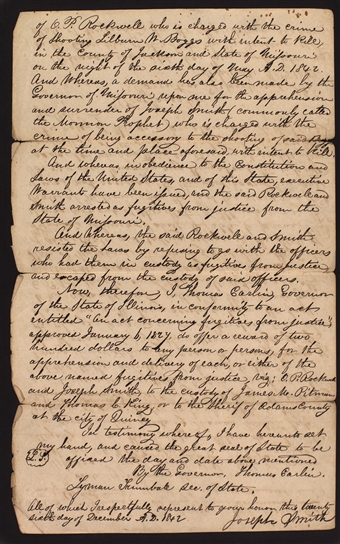 of O. P. Rockwell who is charged with the crime
of shooting Lilburn W. Boggs with intent to kill,
in the County of Jackson and State of Missouri
on the night of the sixth day of May A.D. 1842
And Whereas, a demand has also been made by the
Governor of Missouri upon me for the apprehension
and surrender of Joseph Smith (commonly called
the Mormon Prophet) who is charged with the
crime of being accessory to the shooting of said
at the time and place aforesaid with intent to kill
And whereas in obedience to the Constitution and
Laws of the United States, and of this State, executive
Warrants have been issued, and the said Rockwell and
Smith arrested as fugitives from justice from the
State of Missouri;
And Whereas, the said Rockwell and Smith
resisted the Laws by refusing to go with the officers
who had them in custody as fugitives from justice
and escaped from the custody of said officers.
Now, therefore I, Thomas Carlin Governor
of the State of Illinois, in conformity to an act
entitled "An act concerning fugitives from justice"
approved January 6, 1827, do offer a reward of two
hundred dollars to any person or persons, for the
apprehension and delivery of each, or either of the
above named fugitives from justice viz: O. P. Rockwell
and Joseph Smith, to the custody of James M. Pitman
and Thomas C. King, or to the Sheriff of Adams County
at the city of Quincy
In testimony whereof, I have hereunto set
my hand, and caused the great seal of State to be
affixed the day and date above mentioned
By the Governor, Thomas Carlin
Lyman Trumbull Sec. of State.
All of which I respectfully represent to your honor this twenty
sixth day of December A.D. 1842
Joseph Smith